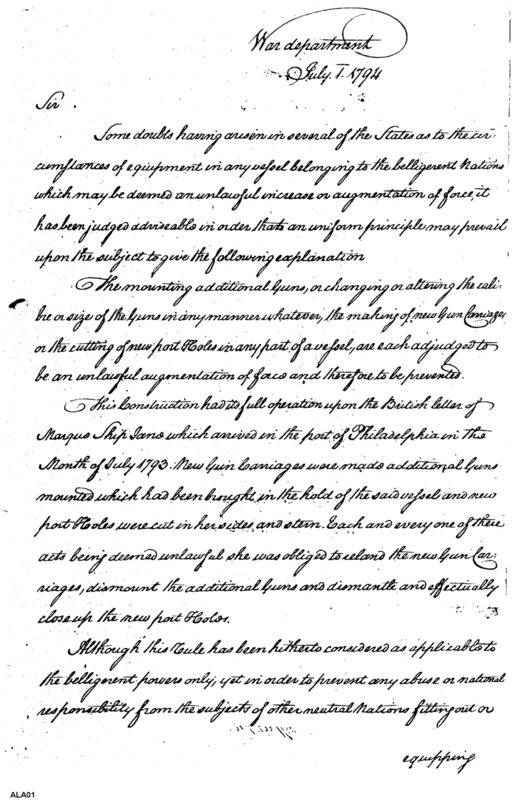 War department
July 1. 1794
Sir.
Some doubts having arisen in several of the States as to the cir-
cumstances of equipment in any vessel belonging to the belligerent Nations
which may be deemed an unlawful increase or augmentation of force, it
has been judged adviseable in order that an uniform principle may prevail
upon the subject to give the following explanation
The mounting additional Guns, or changing or altering the cali-
bre or size of the Guns in any manner whatever, the making of new Gun Carriages
or the cutting of new port Holes in any part of a vessel, are each adjudged to
be an unlawful augmentation of force and therefore to be prevented.
This Construction had its full operation upon the British letter of
Marque Ship Jane which arrived in the port of Philadelphia in the
Month of July 1793. New Gun Carriages were made additional Guns
mounted which had been brought in the hold of the said vessel and new
port Holes were cut in her sides, and stern. Each and every one of these
acts being deemed unlawful she was obliged to reland the new Gun Car-
riages, dismount the additional Guns and dismantle and effectually
close up the new port Holes.
Although this rule has been hitherto considered as applicable to
the belligerent powers only, yet in order to prevent any abuse or national
responsibility from the subjects of other neutral Nations fitting out or
equipping
ALA01